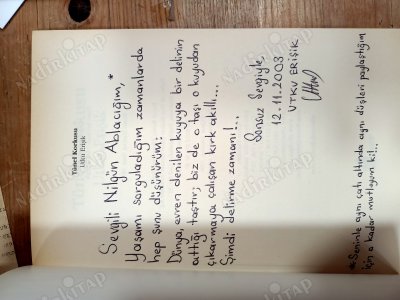 Tünel Korkusu
Utku Erişik
Sevgili Nilgün Ablacığım,*
Yaşamı sorguladığım zamanlarda
hep şunu düşünürüm:
Dünya, evren denilen kuyuya bir delinin
attığı taştır; biz de o taşı o kuyudan
çıkarmaya çalışan kırk akıllı...
Şimdi delirme zamanı!..
Sonsuz Sevgiyle
12.11.2003
UTKU ERİŞİK
*Seninle aynı çatı altında aynı düşleri paylaştığım
için o kadar mutluyum ki!..
NADİRKİTAP